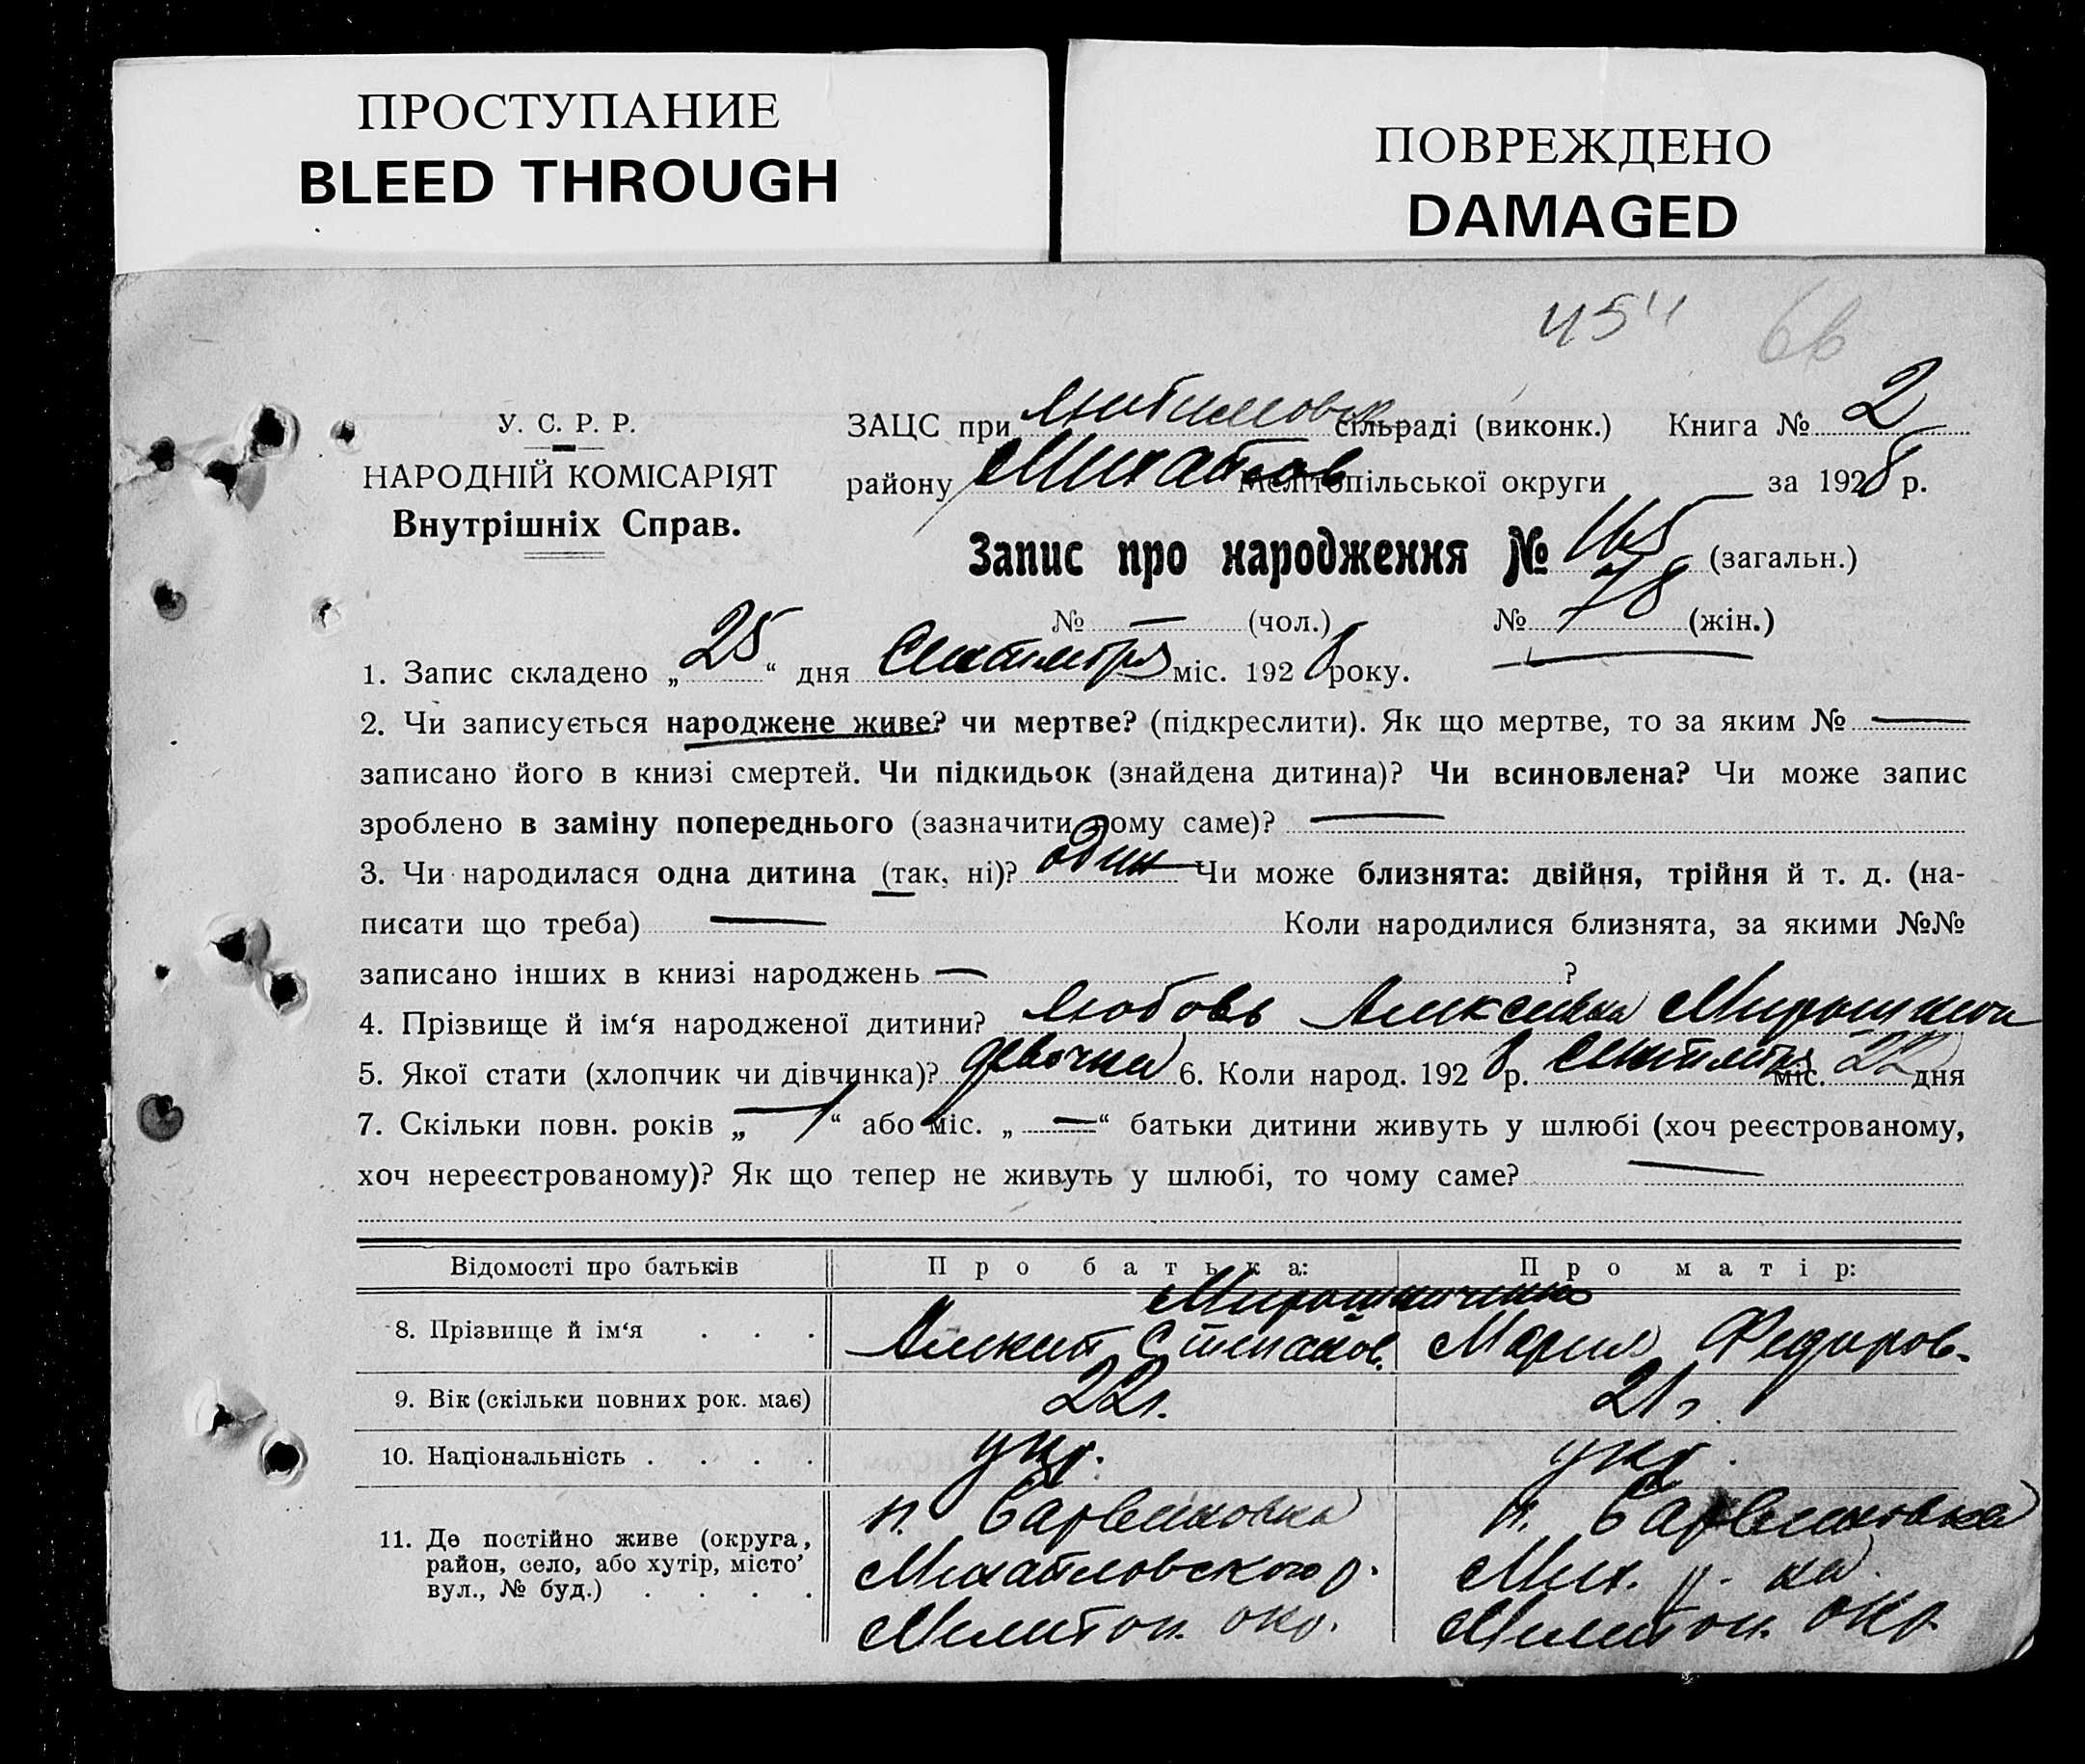 ПРОСТУПАНИЕ
BLEED THROUGH
ПОВРЕЖДЕНО
DAMAGED
454 66
У. С. Р. Р.
НАРОДНІЙ КОМІСАРІЯТ
Внутрішніх Справ.
ЗАЦС при Любимовск сільраді (виконк.) Книга № 2
району Михайлов Мелітопільської округи за 1928 р.
Запис про народження № 165 (загальн.)
№ — (чол.) № 78 (жін.)
1. Запис складено „25“ дня Сентября міс. 1928 року.
2. Чи записується народжене живе? чи мертве? (підкреслити). Як що мертве, то за яким № —
записано його в книзі смертей. Чи підкидьок (знайдена дитина)? Чи всиновлена? Чи може запис
зроблено в заміну попереднього (зазначити кому саме)? —
3. Чи народилася одна дитина (так, ні)? один Чи може близнята: двійня, трійня й т. д. (на-
писати що треба) — Коли народилися близнята, за якими №№
записано інших в книзі народжень — ?
4. Прізвище й ім‘я народженої дитини? Любовь
5. Якої стати (хлопчик чи дівчинка)? девочка 6. Коли народ. 1928 р. Сентября міс. 22 дня
7. Скільки повн. років „1“ або міс. „—“ батьки дитини живуть у шлюбі (хоч реєстрованому,
хоч нереєстрованому)? Як що тепер не живуть у шлюбі, то чому саме? —
Відомості про батьків Про батька: Про матір:
Мирошниченко
8. Прізвище й ім‘я . . . Степанов. Мария Федоров.
9. Вік (скільки повних рок. має) 22 л. 21 г.
10. Національність . . . . укр. укр.
11. Де постійно живе (округа, район, село, або хутір, місто’ вул., № буд.) . . . .
п. Барвиновка п. Барвиновка
Михайловского р. Мих. р-на
Мелитоп. окр. Мелитоп. окр.